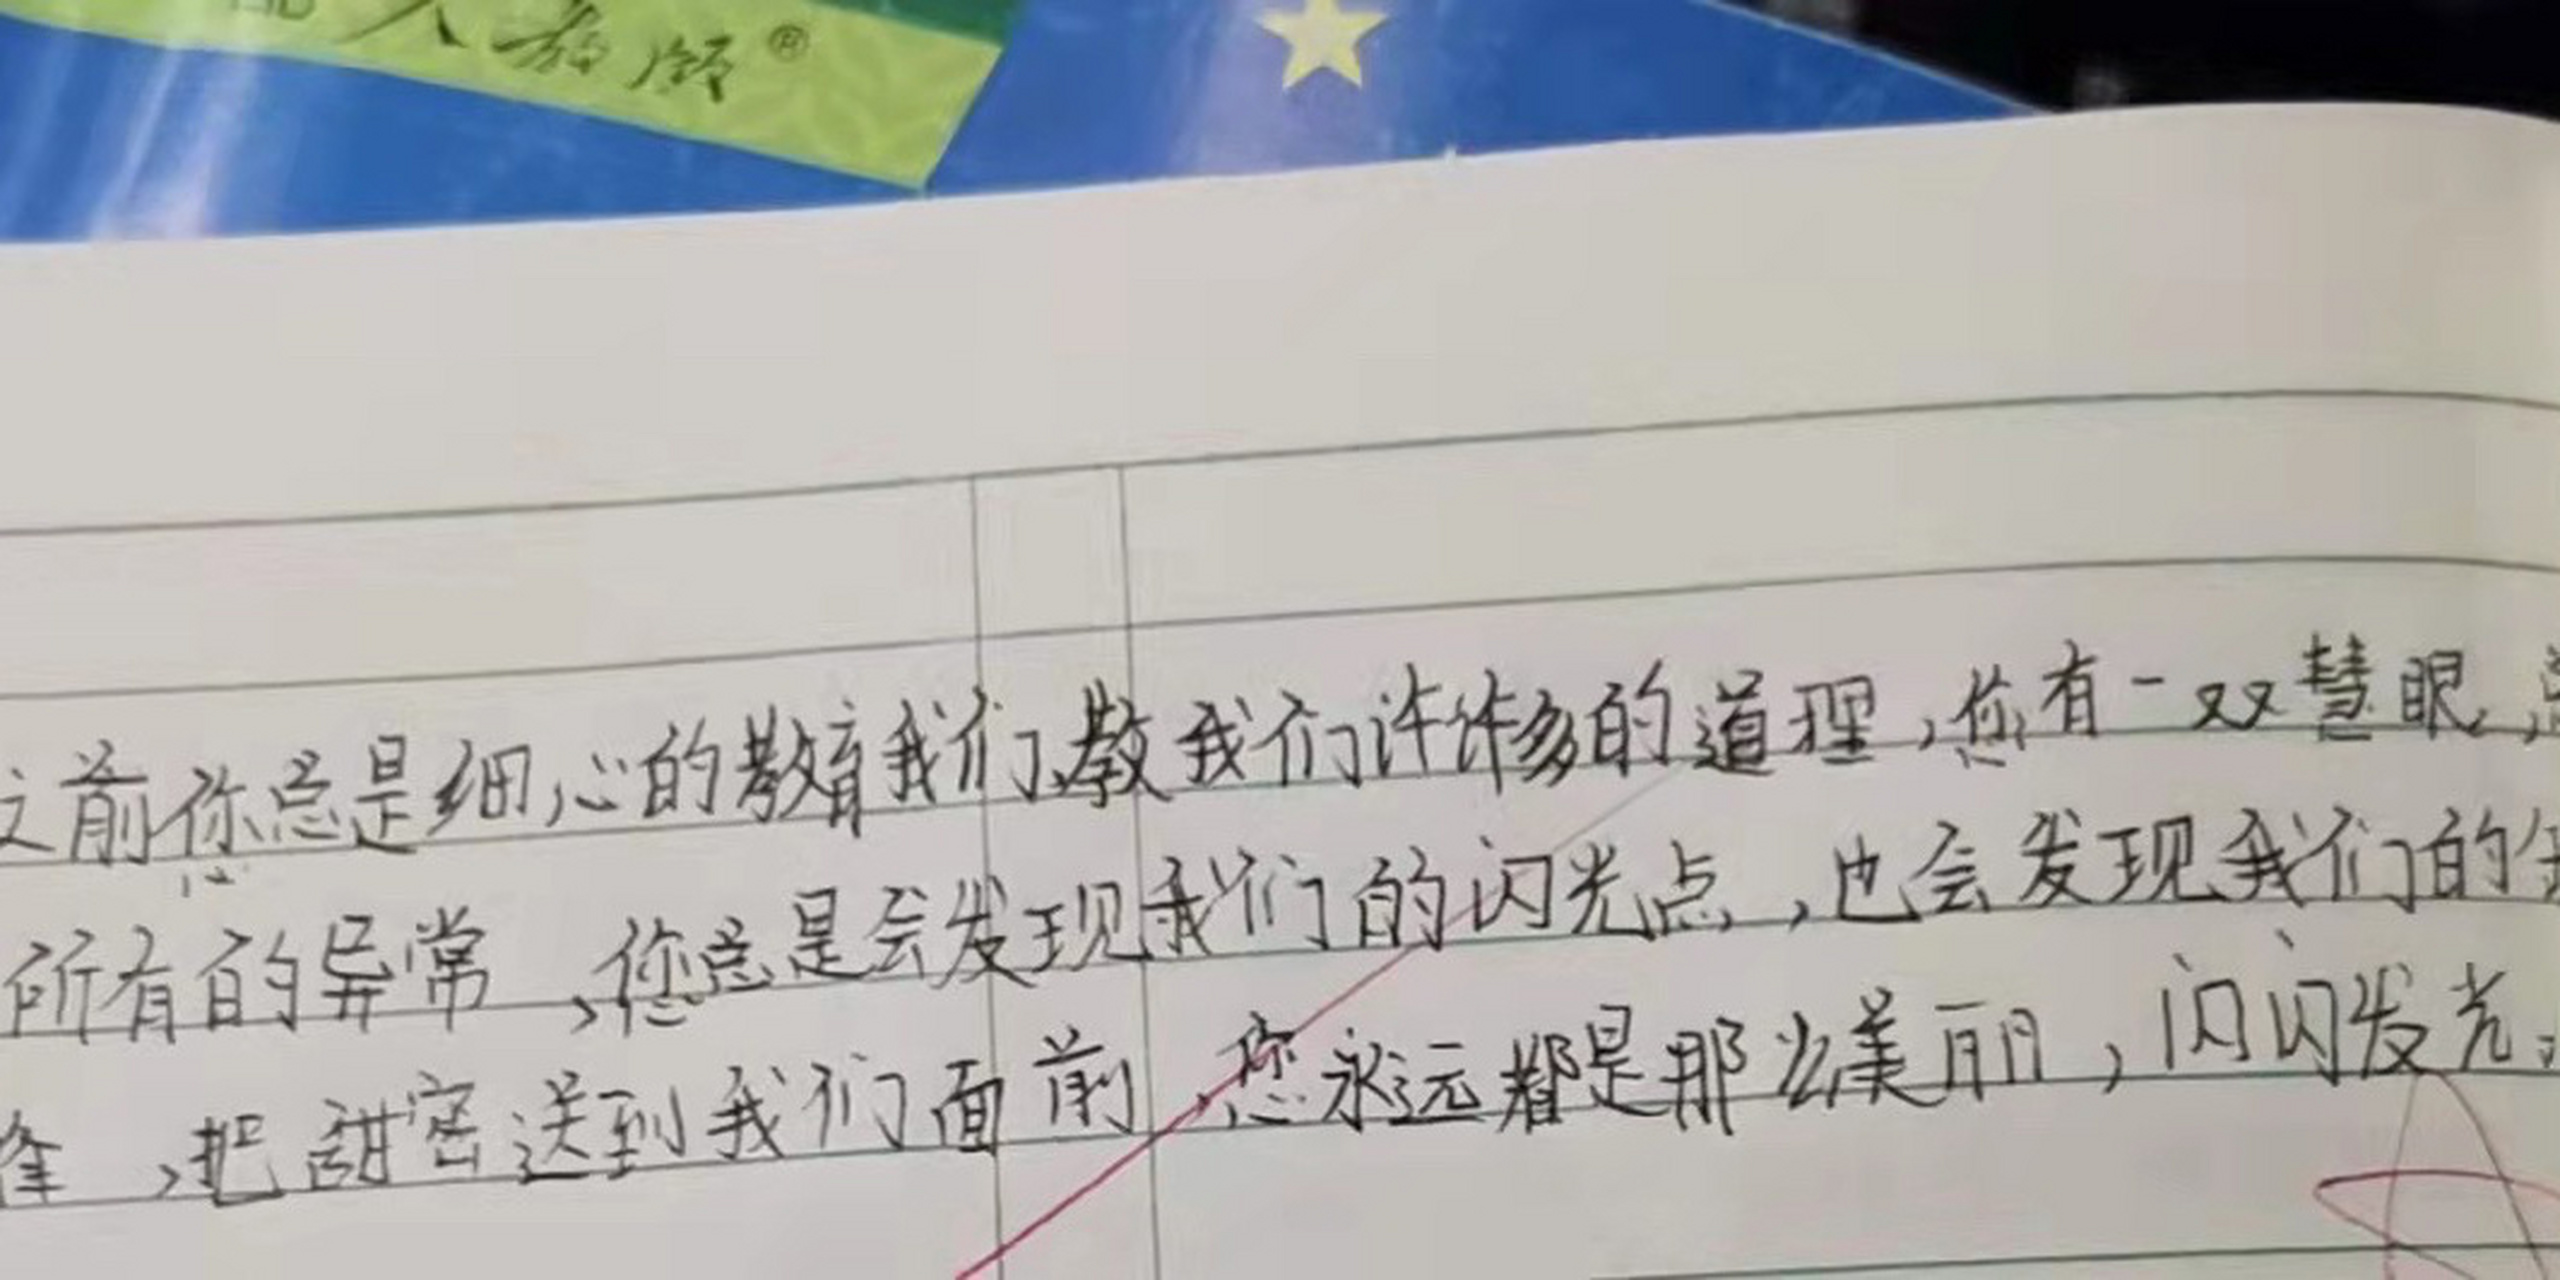 人教领®
之前您总是细心的教育我们,教我们许许多的道理,您有一双慧眼,
所有的异常,您总是会发现我们的闪光点,也会发现我们的
,把甜密送到我们面前,您永远都是那么美丽,闪闪发光。